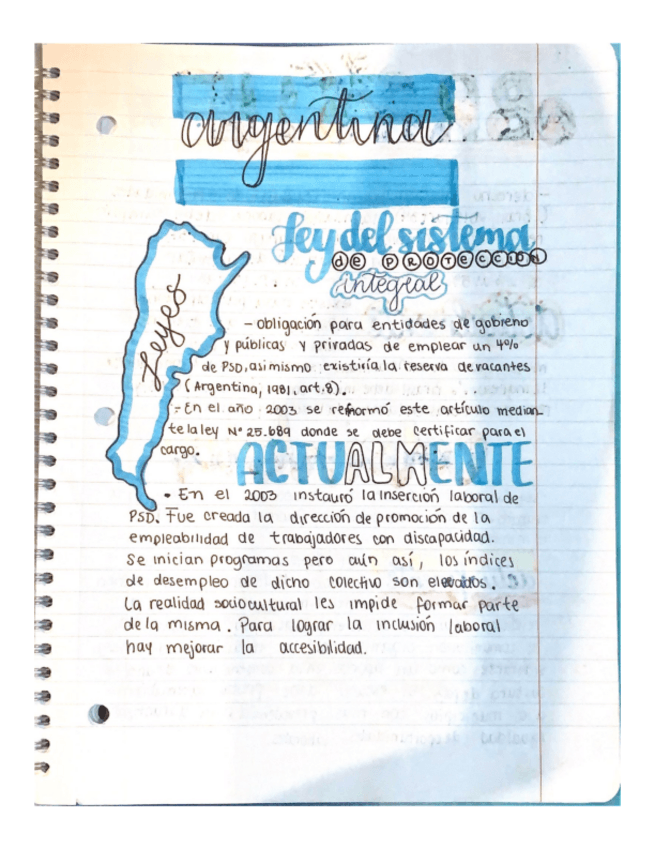 argentina
Ley del sistema
DE PROTECCION
integral
Leyes
- obligación para entidades de gobieno
y públicas y privadas de emplear un 4%
de PSD, asi mismo existiría la reserva de vacantes
(Argentina, 1981, art. 8).
- En el año 2003 se reformó este artículo median_
te la ley N° 25.689 donde se debe certificar para el
cargo.
ACTUALMENTE
• En el 2003 instauró la inserción laboral de
PSD. Fue creada la dirección de promoción de la
empleabilidad de trabajadores con discapacidad.
Se inician programas pero aún así, los índices
de desempleo de dicho colectivo son elevados.
La realidad sociocultural les impide formar parte
de la misma. Para lograr la inclusión laboral
hay mejorar la accesibilidad.